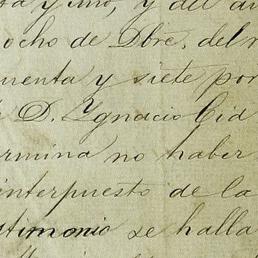 ta y uno, y del au
ocho de Dbre. del
cuenta y siete por
D. Ygnacio Cid
ermina no haber
interpuesto de la
stimonio se halla